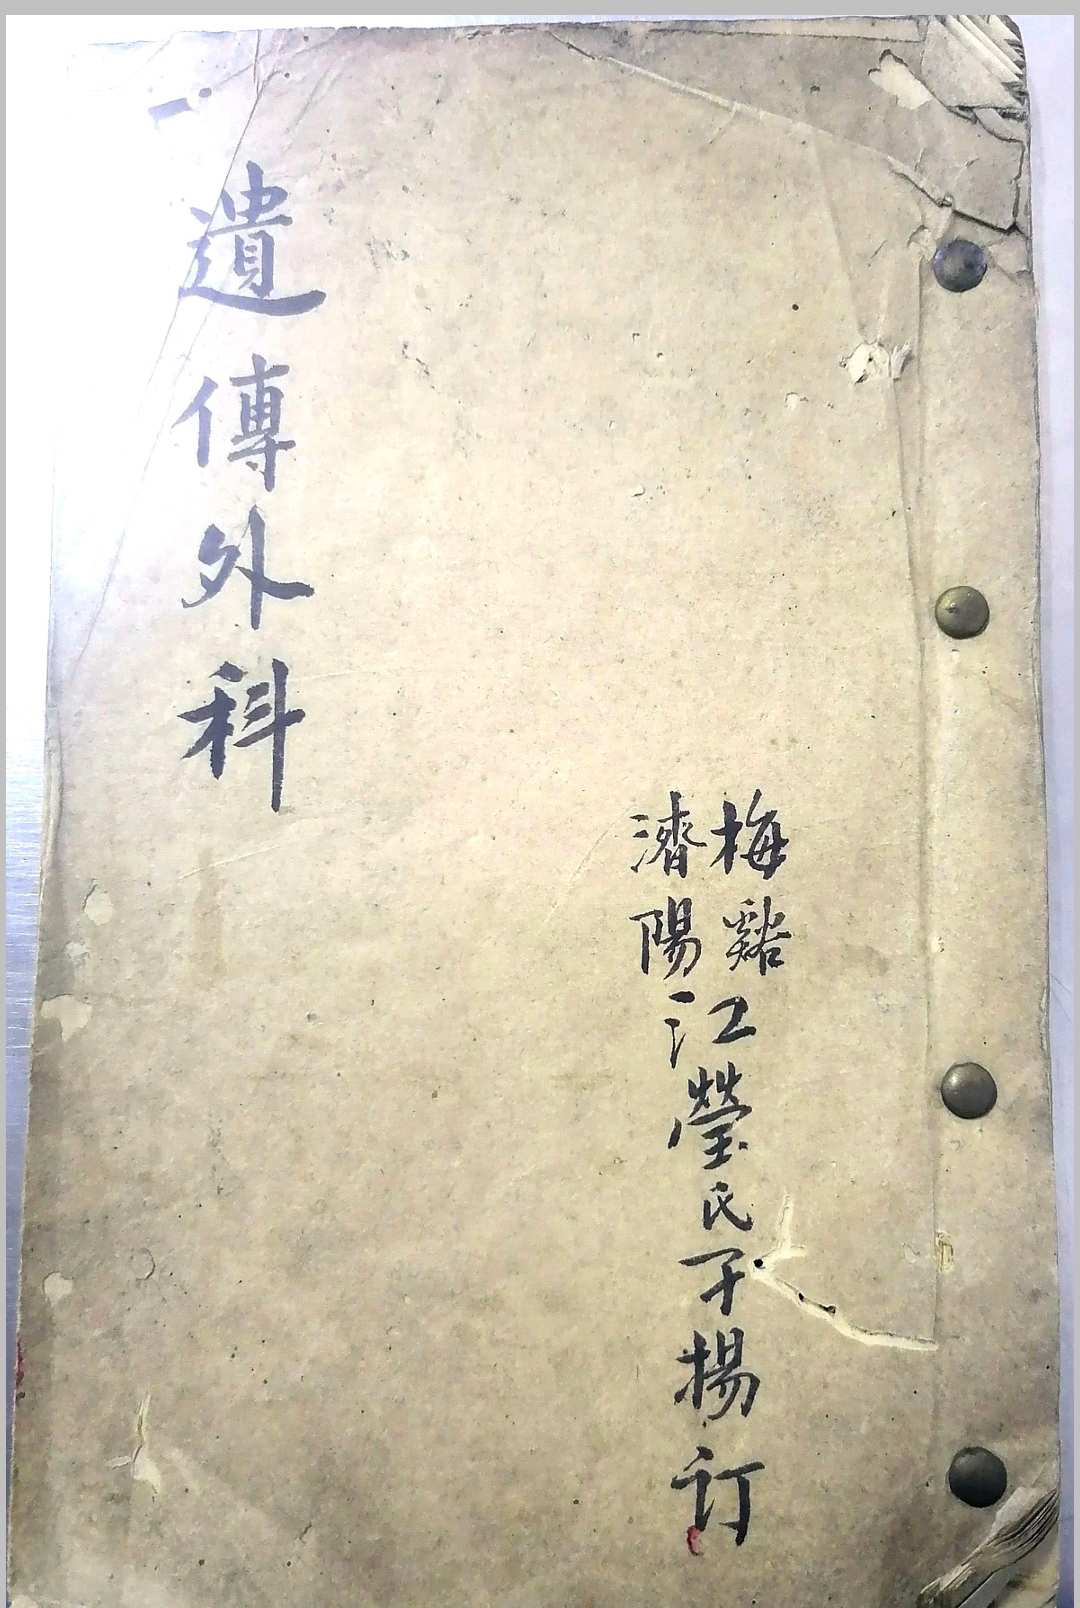 梅谿
濟陽
江瑩氏子楊訂
遺傳外科